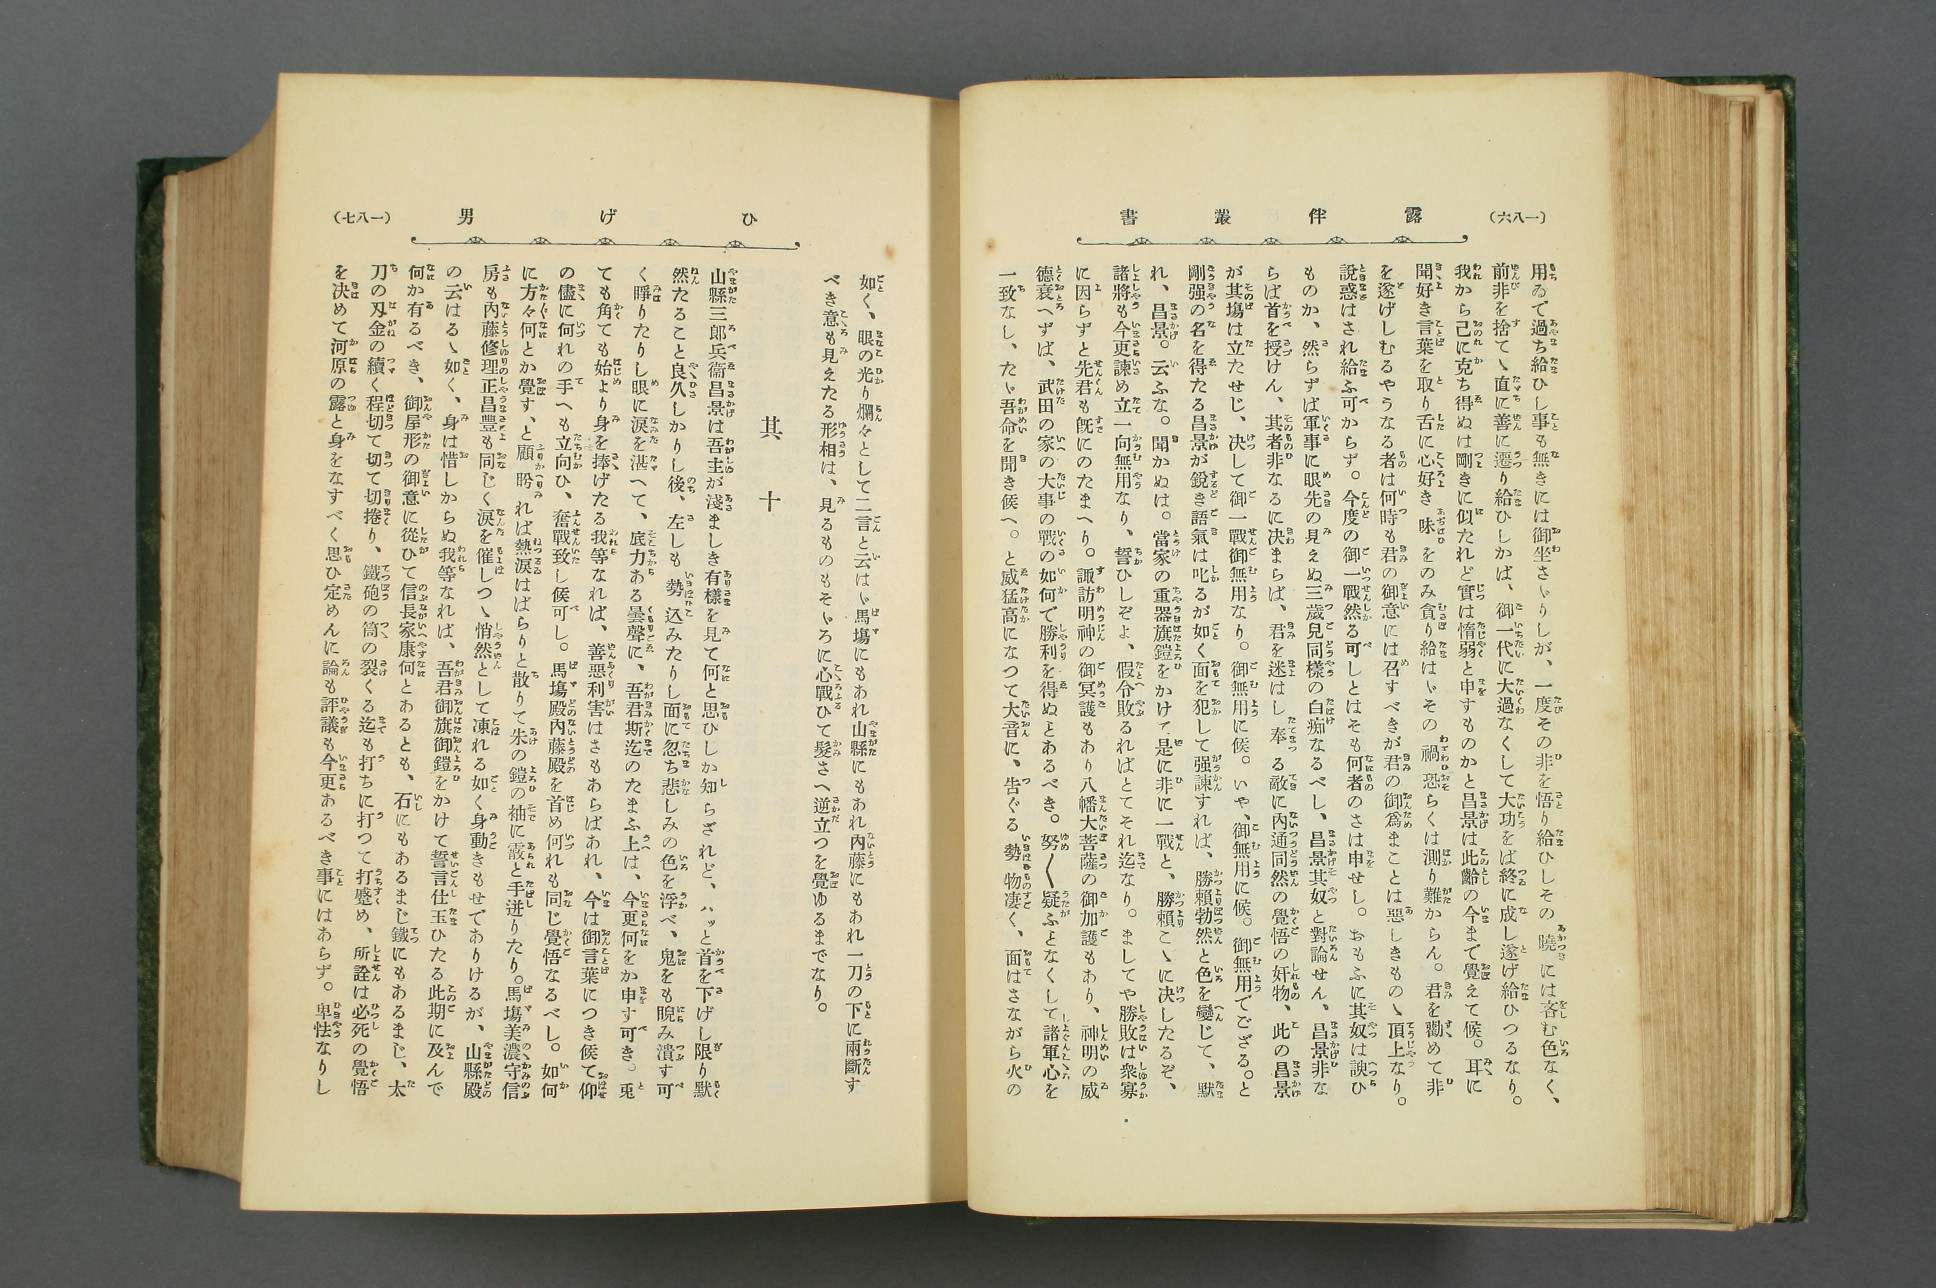 （一八六）
露伴叢書
用ゐて過ち給ひし事も無きには御坐さゞりしが、一度その非を悟り給ひしその曉には吝む色なく、
前非を捨てゝ直に善に遷り給ひしかば、御一代に大過なくして大功をば終に成し遂げ給ひつるなり。
我から己に克ち得ぬは剛きに似たれど實は惰弱と申すものかと昌景は此齡の今まで覺えて候。耳に
聞好き言葉を取り舌に心好き味をのみ貪り給はゞその禍恐らくは測り難からん。君を勸めて非
を遂げしむるやうなる者は何時も君の御意には召すべきが君の御爲まことは惡しきものゝ頂上なり。
說惑はされ給ふ可からず。今度の御一戰然る可しとはそも何者のさは申せし。おもふに其奴は諛ひ
ものか、然らずは軍事に眼先の見えぬ三歲兒同樣の白痴なるべし、昌景其奴と對論せん、昌景非な
らば首を授けん、其者非なるに决まらば、君を迷はし奉る敵に內通同然の覺悟の奸物、此の昌景
が其塲は立たせじ、决して御一戰御無用なり。御無用に候。いや、御無用に候。御無用でござる。と
剛强の名を得たる昌景が銳き語氣は叱るが如く面を犯して强諫すれば、勝賴勃然と色を變じて、默
れ、昌景。云ふな。聞かぬは。當家の重器旗鎧をかけて是に非に一戰と、勝賴こゝに决したるぞ、
諸將も今更諫め立一向無用なり、誓ひしぞよ、假令敗るればとてそれ迄なり。ましてや勝敗は衆寡
に因らずと先君も旣にのたまへり。諏訪明神の御冥護もあり八幡大菩薩の御加護もあり、神明の威
德衰へずば、武田の家の大事の戰の如何で勝利を得ぬとあるべき。努〱疑ふとなくして諸軍心を
一致なし、たゞ吾命を聞き候へ。と威猛高になつて大音に、吿ぐる勢物凄く、面はさながら火の
ひげ男
（一八七）
如く、眼の光り爛々として二言と云はゞ馬塲にもあれ山縣にもあれ內藤にもあれ一刀の下に兩斷す
べき意も見えたる形相は、見るものもそゞろに心戰ひて髮さへ逆立つを覺ゆるまでなり。
其十
山縣三郎兵衞昌景は吾主が淺ましき有樣を見て何と思ひしか知らざれど、ハッと首を下げし限り默
然たること良久しかりし後、左しも勢込みたりし面に忽ち悲しみの色を浮べ、鬼をも睨み潰す可
く睜りたりし眼に淚を湛へて、底力ある曇聲に、吾君斯迄のたまふ上は、今更何をか申す可き。兎
ても角ても始より身を捧げたる我等なれば、善惡利害はさもあらばあれ、今は御言葉につき候て仰
の儘に何れの手へも立向ひ、奮戰致し候可し。馬塲殿內藤殿を首め何れも同じ覺悟なるべし。如何
に方々何とか覺す、と顧盻れば熱淚はばらりと散りて朱の鎧の袖に霰と手迸りたり。馬塲美濃守信
房も內藤修理正昌豐も同じく淚を催しつゝ悄然として凍れる如く身動きもせでありけるが、山縣殿
の云はるゝ如く、身は惜しからぬ我等なれば、吾君御旗御鎧をかけて誓言仕玉ひたる此期に及んで
何か有るべき、御屋形の御意に從ひて信長家康何とあるとも、石にもあるまじ鐵にもあるまじ、太
刀の刄金の續く程切て切て切捲り、鐵砲の筒の裂くる迄も打ちに打つて打盡め、所詮は必死の覺悟
を決めて河原の露と身をなすべく思ひ定めんに論も評議も今更あるべき事にはあらず。卑怯なりし